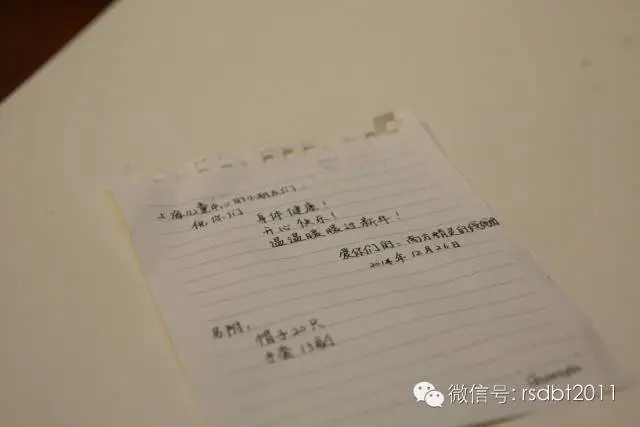 上海儿童中心的小朋友们：
祝你们
身体健康！
开心快乐！
温温暖暖过新年！
爱你们的：南方
2014年12月26日
另附：
帽子20只
手套13副
微信号: rsdbt2011